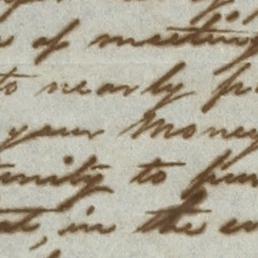 of meeting
to nearly
your Money
unity to pur
in the